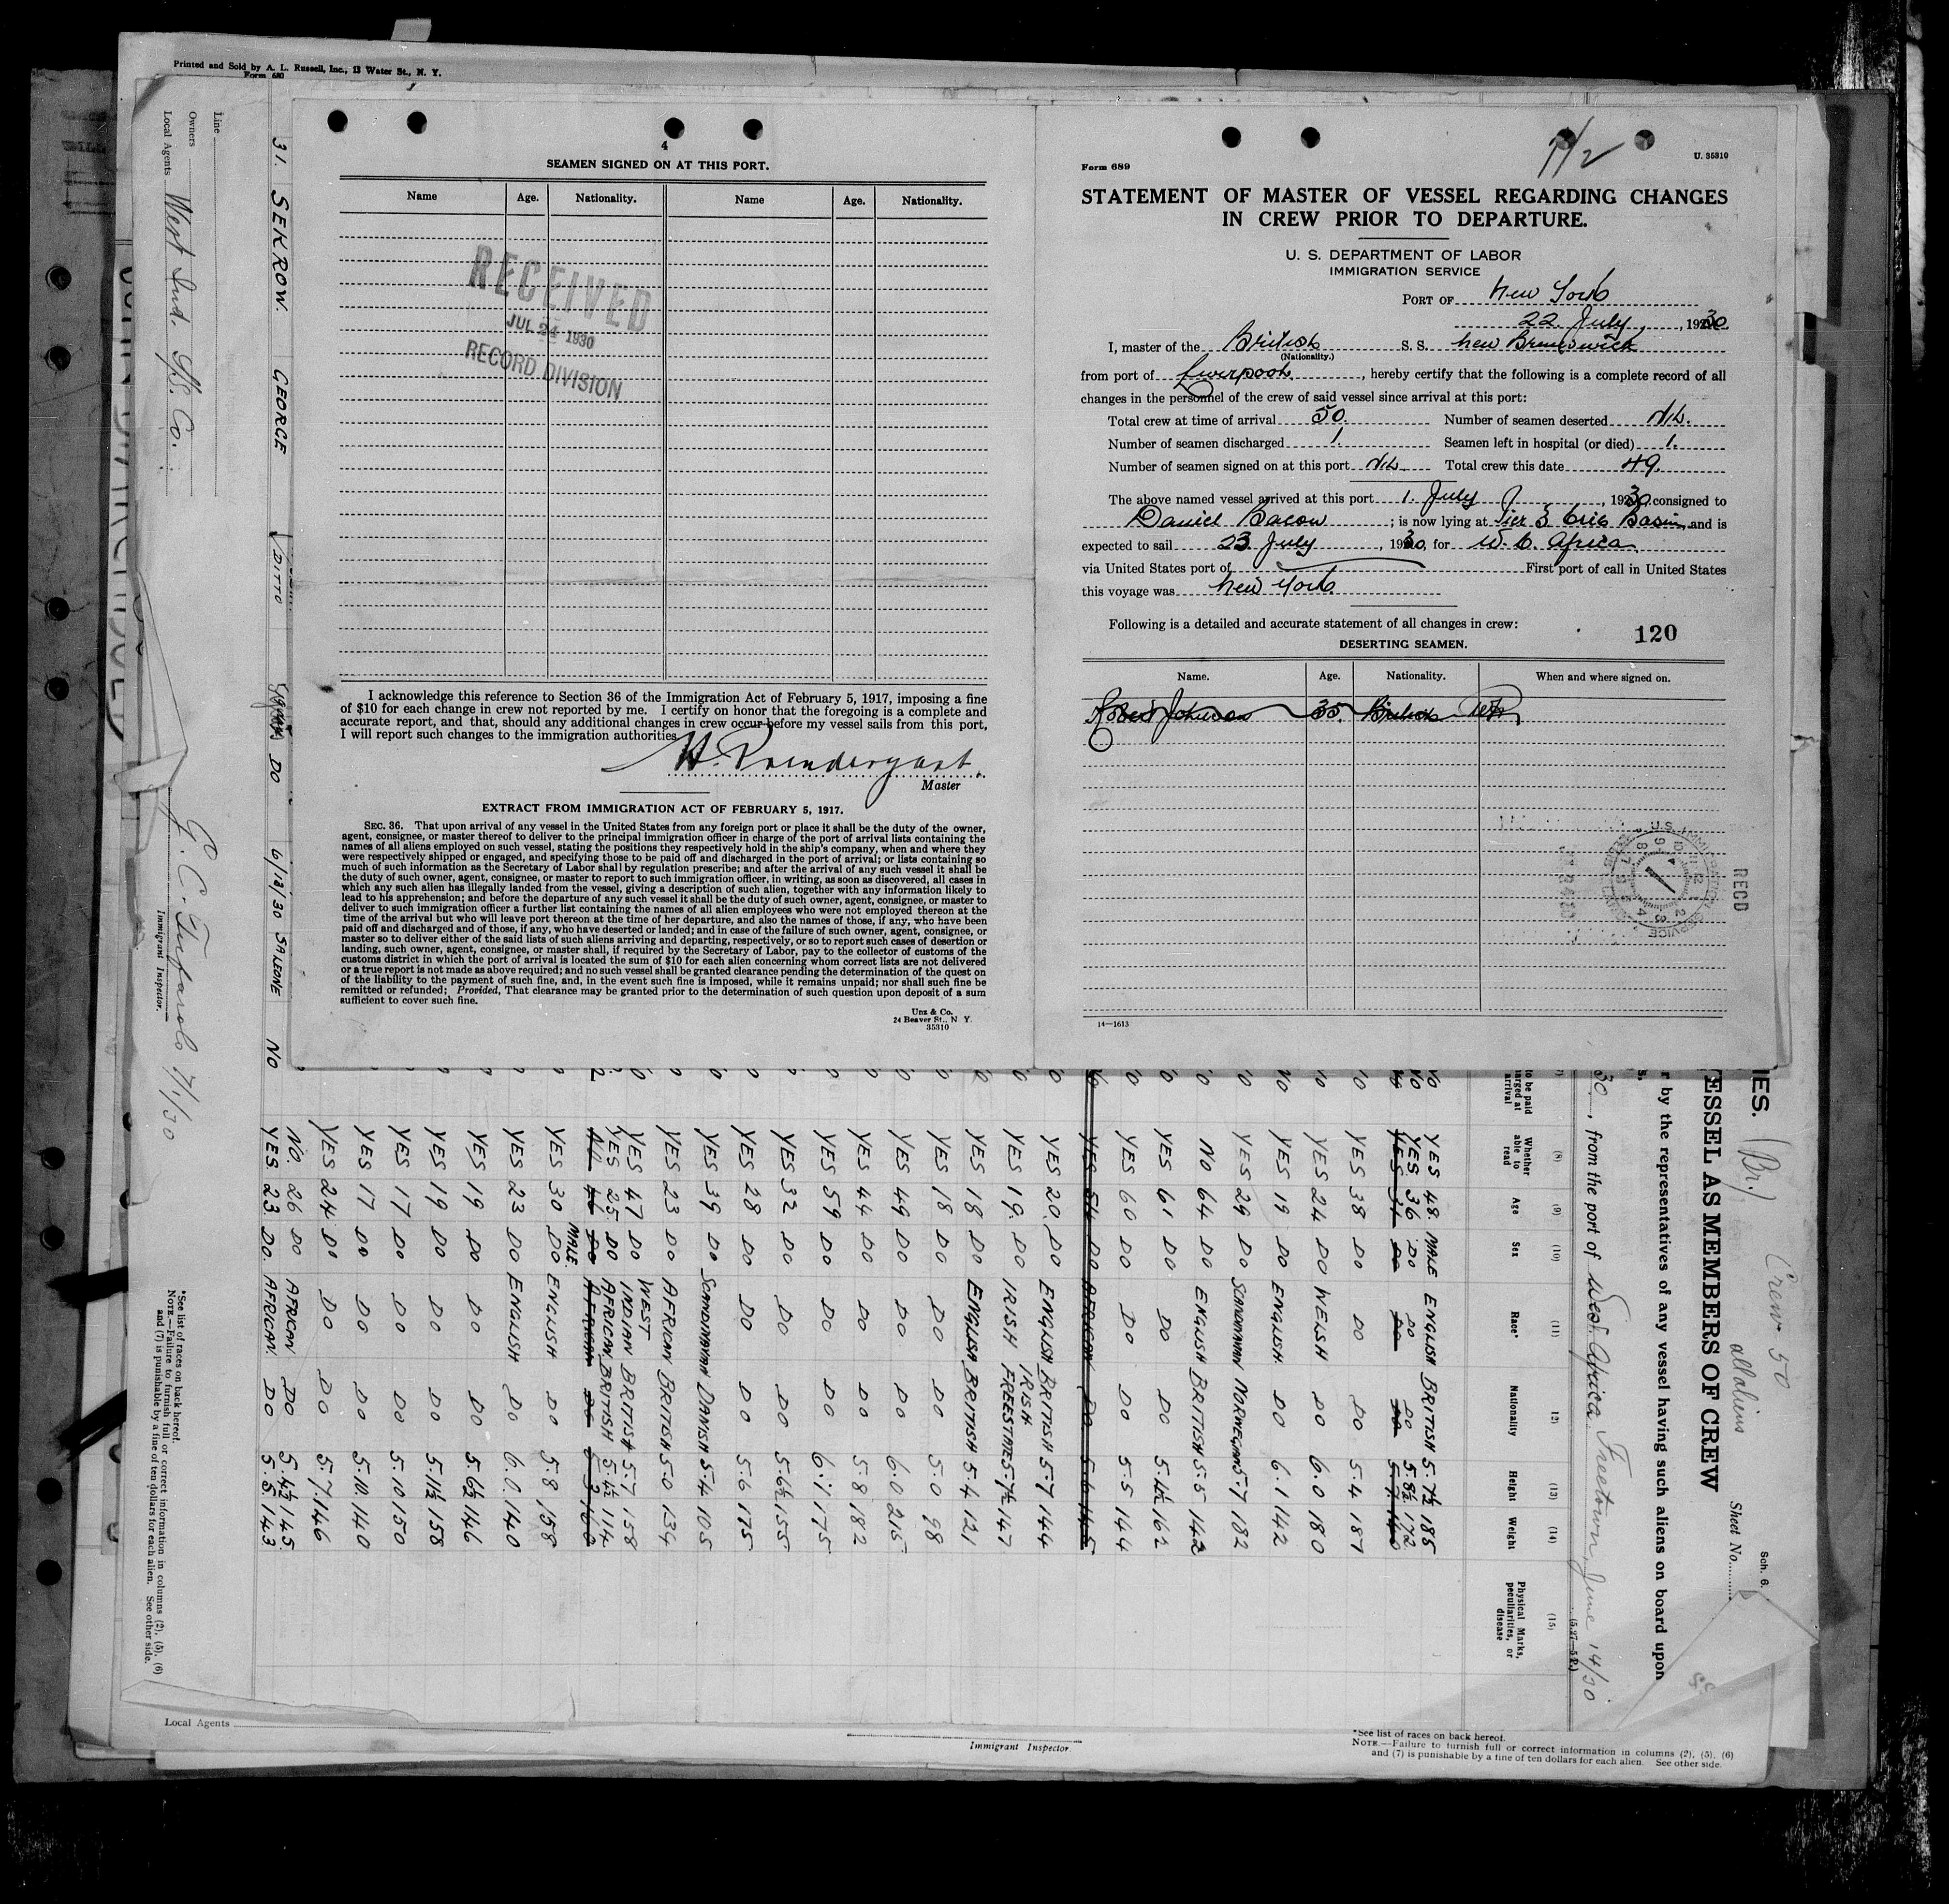 Printed and Sold by A. L. Russell, Inc., 13 Water St., N. Y.
Form 680
Line
Owners
Local Agents West Ind. S/S. Co.
31. SEKROW. GEORGE DITTO DO 6/13/30 SALEENE NO
Immigrant Inspector.
7/1/30
4
SEAMEN SIGNED ON AT THIS PORT.
Name Age. Nationality. Name Age. Nationality.
RECEIVED
JUL 24 1930
RECORD DIVISION
I acknowledge this reference to Section 36 of the Immigration Act of February 5, 1917, imposing a fine
of $10 for each change in crew not reported by me. I certify on honor that the foregoing is a complete and
accurate report, and that, should any additional changes in crew occur before my vessel sails from this port,
I will report such changes to the immigration authorities.
H. Prendergast.
Master
EXTRACT FROM IMMIGRATION ACT OF FEBRUARY 5, 1917.
SEC. 36. That upon arrival of any vessel in the United States from any foreign port or place it shall be the duty of the owner,
agent, consignee, or master thereof to deliver to the principal immigration officer in charge of the port of arrival lists containing the
names of all aliens employed on such vessel, stating the positions they respectively hold in the ship's company, when and where they
were respectively shipped or engaged, and specifying those to be paid off and discharged in the port of arrival; or lists containing so
much of such information as the Secretary of Labor shall by regulation prescribe; and after the arrival of any such vessel it shall be
the duty of such owner, agent, consignee, or master to report to such immigration officer, in writing, as soon as discovered, all cases in
which any such alien has illegally landed from the vessel, giving a description of such alien, together with any information likely to
lead to his apprehension; and before the departure of any such vessel it shall be the duty of such owner, agent, consignee, or master to
deliver to such immigration officer a further list containing the names of all alien employees who were not employed thereon at the
time of the arrival but who will leave port thereon at the time of her departure, and also the names of those, if any, who have been
paid off and discharged and of those, if any, who have deserted or landed; and in case of the failure of such owner, agent, consignee, or
master so to deliver either of the said lists of such aliens arriving and departing, respectively, or so to report such cases of desertion or
landing, such owner, agent, consignee, or master shall, if required by the Secretary of Labor, pay to the collector of customs of the
customs district in which the port of arrival is located the sum of $10 for each alien concerning whom correct lists are not delivered
or a true report is not made as above required; and no such vessel shall be granted clearance pending the determination of the quest on
of the liability to the payment of such fine, and, in the event such fine is imposed, while it remains unpaid; nor shall such fine be
remitted or refunded; Provided, That clearance may be granted prior to the determination of such question upon deposit of a sum
sufficient to cover such fine.
Unz & Co.
24 Beaver St., N Y.
35310
7/2
Form 689
U. 35310
STATEMENT OF MASTER OF VESSEL REGARDING CHANGES
IN CREW PRIOR TO DEPARTURE.
U. S. DEPARTMENT OF LABOR
IMMIGRATION SERVICE
PORT OF New York
22 July, 1930.
I, master of the British S. S. New Brunswick
(Nationality.)
from port of Liverpool, hereby certify that the following is a complete record of all
changes in the personnel of the crew of said vessel since arrival at this port:
Total crew at time of arrival 50. Number of seamen deserted Nil.
Number of seamen discharged 1. Seamen left in hospital (or died) 1.
Number of seamen signed on at this port Nil Total crew this date 49.
The above named vessel arrived at this port 1. July, 1930, consigned to
Daniel Bacon; is now lying at Pier 3 Erie Basin, and is
expected to sail 23 July, 1930, for W. C. Africa
via United States port of First port of call in United States
this voyage was New York.
Following is a detailed and accurate statement of all changes in crew:
120
DESERTING SEAMEN.
Name. Age. Nationality. When and where signed on.
Robert Johnson 35. British
U.S. IMMIGRATION SERVICE
RECD
14—1613
IES. (Br.) Crew 50
all aliens
Sch. 6.
ESSEL AS MEMBERS OF CREW Sheet No.
r by the representatives of any vessel having such aliens on board upon
30, from the port of West Africa Freetown, June 14/30
(5-27—5 P.)
(8) (9) (10) (11) 12) (13) (14) (15)
to be paid
arged at
arrival
Whether
able to
read
Age Sex Race* Nationality Height Weight
Physical Marks,
peculiarities, or
disease
NO YES 48. MALE ENGLISH BRITISH 5.7½ 185
NO YES 36 DO DO DO 5.8½ 172
YES 31 DO DO DO 5.7 140
YES 38 DO DO DO 5.4 187
YES 24 DO WELSH DO 6.0 180
NO YES 19 DO ENGLISH DO 6.1 142
YES 29 DO SCANDINAVIAN NORWEGIAN 5.7 182
NO 64 DO ENGLISH BRITISH 5.5 142
YES 61 DO DO DO 5.4½ 162
YES 60 DO DO DO 5.5 144
YES 54 DO AFRICAN DO 5.6 145
YES 20. DO ENGLISH BRITISH 5.7 144
YES 19. DO IRISH IRISH FREESTATE 5.7½ 147
YES 18 DO ENGLISH BRITISH 5.4 121
YES 18 DO DO DO 5.0 98
YES 49 DO DO DO 6.0 215
YES 44 DO DO DO 5.8 182
YES 59 DO DO DO 6.1 175
YES 32 DO DO DO 5.6½ 155
YES 28 DO DO DO 5.6 175
YES 39 DO SCANDINAVIAN DANISH 5.4 105
YES 23 DO AFRICAN BRITISH 5.0 134
YES 47 DO WEST INDIAN BRITISH 5.7 158
YES 25 DO AFRICAN BRITISH 5.4½ 114
YES 30 MALE DO ENGLISH DO 5.8 158
YES 23 DO ENGLISH DO 6.0 140
YES 19 DO DO DO 5.6½ 146
YES 19 DO DO DO 5.11½ 158
YES 17 DO DO DO 5.10 150
YES 17 DO DO DO 5.10. 140
YES 24 DO DO DO 5.7. 146
NO. 26 DO AFRICAN DO 5.4½ 145.
YES 23 DO. AFRICAN. DO 5.5 143
*See list of races on back hereof.
NOTE.—Failure to furnish full or correct information in columns (2), (5), (6)
and (7) is punishable by a fine of ten dollars for each alien. See other side.
Local Agents
Immigrant Inspector.
*See list of races on back hereof.
NOTE.—Failure to furnish full or correct information in columns (2), (5), (6)
and (7) is punishable by a fine of ten dollars for each alien. See other side.